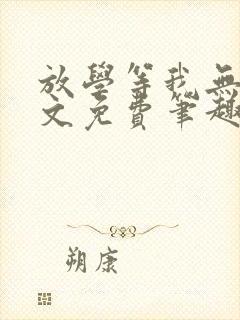 放學等我無
文免費筆趣
朔康